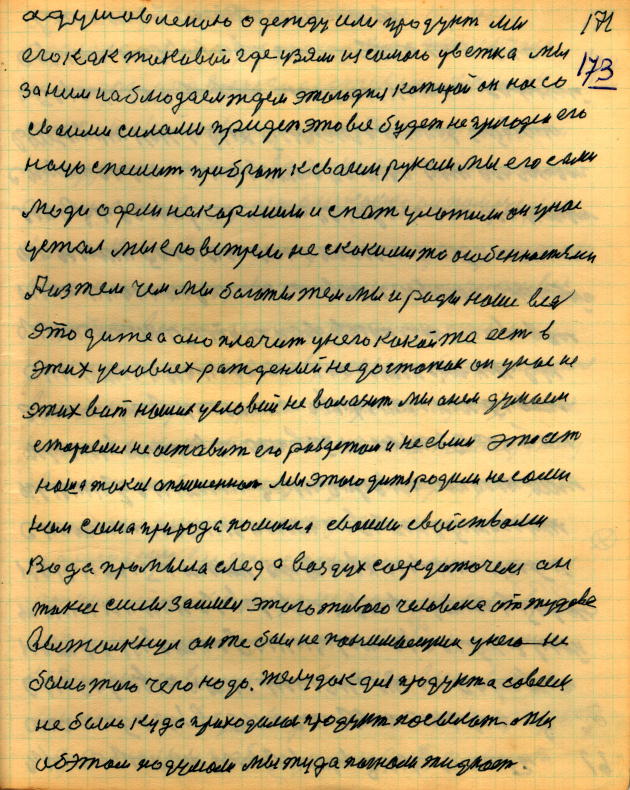 одушовленою одежду или продукт мы 171
его как таковой где узяли из самого цветка мы 173
за ним наблюдаем ждем этого дня которой он нас со
своими силами придет это все будет не пригоден его
надо спешит прибрат к своим рукам мы его сами
люди одели накормили и спат уложили он у нас
устал мы его встрели не скокими то особенностями
А из тем чем мы богаты тем мы и рады наше вед
это дитя а оно плачит у него какойта ест в
этих условиех рождений недостаток он у нас не
этих вот наших условий не вылазит мы о нем думаем
стараемся не оставит его раздетом и не своим это ест
наша такая отношеннот мы этого дитя родили не сами
нам сама природа помогла своими свойствами
Вода промыла след а воздух сосредоточен он
такие силы занял этого живого человека оттудова
Вытолкнул он же был не понимающим у него не
было того чего надо. Желудок для продукта совсем
не было куда приходилос продукт посылат мы
об этом подумали мы туда погнали жидкост.